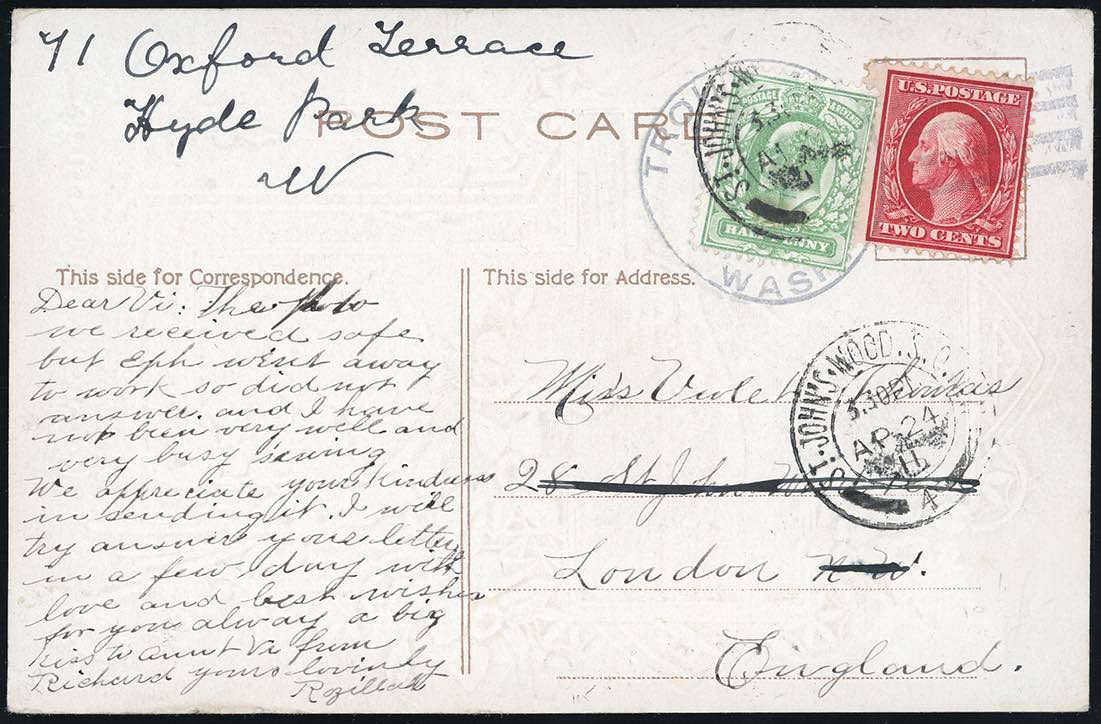 71 Oxford Terrace
Hyde Park
W
POST CARD
TROU
WASH
ST. JOHN'S
3.3
HALFPENNY
POSTAGE REVENUE
U.S. POSTAGE
TWO CENTS
This side for Correspondence.
Dear Vi: The photo
we received safe
but Eph went away
to work so did not
answer. and I have
not been very well and
very busy sewing
We appreciate your kindness
in sending it. I will
try answer your letter
in a few day with
love and best wishes
for you alway a big
kiss to aunt Vi from
Richard yours lovinly
Rozillah
This side for Address.
Miss Viole
28 St John
London N.W.
England.
ST. JOHN'S.WOOD.S.O.
3.30PM
AP 24
11
4